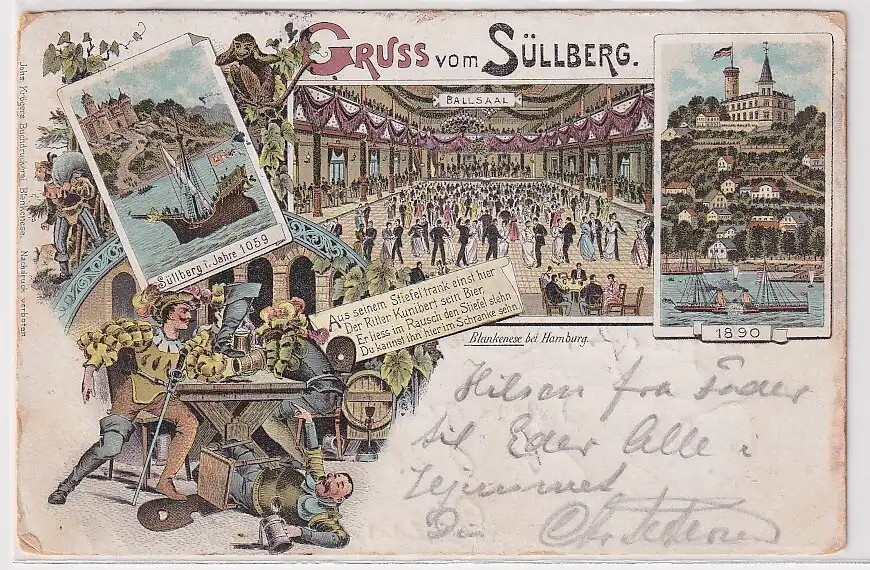 GRUSS VOM SÜLLBERG.
BALLSAAL
Süllberg i. Jahre 1059
Aus seinem Stiefel trank einst hier
Der Ritter Kunibert sein Bier.
Er liess im Rausch den Stiefel stehn
Du kannst ihn hier im Schranke sehn.
Blankenese bei Hamburg.
1890
Johs. Krögers Buchdruckerei, Blankenese. Nachdruck verboten
Hilsen fra
til Eder Alle i
Hjemmet
Din